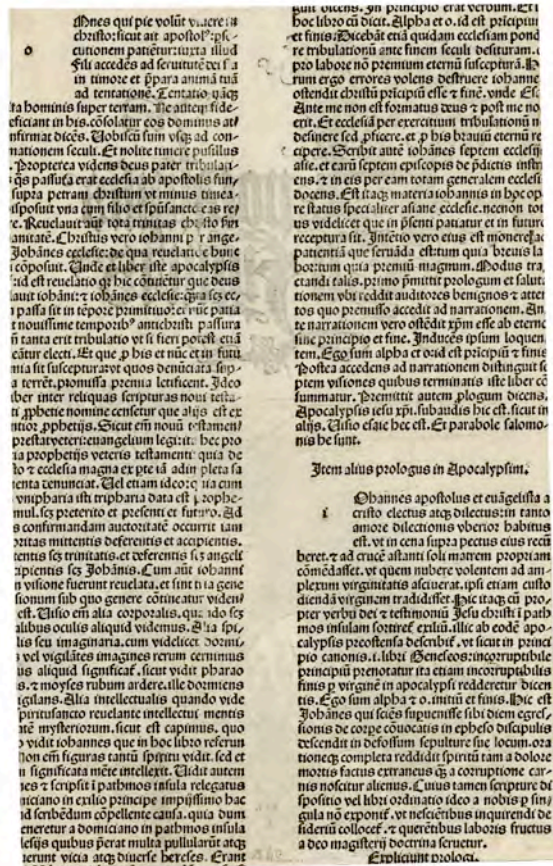 Omnes qui pie volūt viuere in
o christo: sicut ait apostol⁹: ꝑse⸗
cutionem patiētur: iuxta illud
Fili accedēs ad seruitutē dei sta
in timore et p̄para animā tuā
ad tentationē. Tentatio
ta hominis super terram. Ne autem fide⸗
eficiant in his. cōsolatur eos dominus
nfirmat dicēs. Vobiscū sum vsqꝫ ad con⸗
mationem seculi. Et nolite timere pusillus
. Propterea videns deus pater tribulati⸗
s passura erat ecclesia ab apostolis fun⸗
supra petram christum vt minus timea⸗
isposuit vna cum filio et spūsancto eas re⸗
e. Reuelauit aūt tota trinitas christo
anitatē. Christus vero iohanni ꝑ ange⸗
Johānes ecclesie: de qua reuelatiōe hunc
cōposuit. Unde et liber iste apocalypsis
: id est reuelatio qꝫ hic cōtinētur que deus
lauit iohāni: ⁊ iohānes ecclesie:
passa sit in tēpore primitiuo: et nūc patia
t nouissime temporib⁹ antichristi passura
ū tanta erit tribulatio vt si fieri potest etiā
eātur electi. Et que ꝓ his et nūc et in futu
nia sit susceptura: vt quos denūciata
ra terrēt. promissa premia letificent. Ideo
iber inter reliquas scripturas noui testa⸗
ti ꝓphetie nomine censetur quia alijs est ex
ntior ꝓphetijs. Sicut em̄ nouū testamen⸗
prestat veteri: euangelium legi: ita hec pro
ia prophetijs veteris testamenti quia de
to ⁊ ecclesia magna ex pte iā adimpleta sa
menta denunciat. Vel etiam ideo: quia cum
vnipharia isti tripharia data est prophe⸗
mul. scꝫ preterito et presenti et futuro. Ad
s confirmandam auctoritatē occurrit iam
oritas mittentis deferentis et accipientis.
tentis scꝫ trinitatis. et deferentis scꝫ angeli
ipientis scꝫ Johānis. Cum aūt iohanni
n visione fuerunt reuelata. et sint tria gene
sionum sub quo genere cōtineatur viden⸗
est. Visio em̄ alia corporalis. quādo scꝫ
alibus oculis aliquid videmus. Alia spi⸗
lis seu imaginaria. cum videlicet dormi⸗
vel vigilātes imagines rerum cernimus
us aliquid significat. sicut vidit pharao
as. ⁊ moyses rubum ardere. ille dormiens
igilans. Alia intellectualis quando vide
piritusancto reuelante intellectui mentis
atē mysteriorum. sicut est capimus. quo
o vidit iohannes que in hoc libro referun
Non em̄ figuras tantū spiritu vidit. sed et
significata mēte intellexit. Vidit autem
nes ⁊ scripsit ī pathmos insula relegatus
niciano in exilio principe impijssimo hac
ad scribēdum cōpellente causa. quia dum
eneretur a domiciano in pathmos insula
lesijs quibus p̄erat multa pullularūt atqꝫ
rerunt vicia atqꝫ diuerse hereses. Erant
gunt dicens. In principio erat verbum. Et ī
hoc libro cū dicit. Alpha et o. id est prīcipiū
et finis. Dicebāt etiā quidam ecclesiam pond
re tribulationū ante finem seculi desituram. ⁊
pro labore nō premium eternū suscepturā. H
rum ergo errores volens destruere iohanne
ostendit christū prīcipiū esse ⁊ finē. vnde Es.
Ante me non est formatus deus ⁊ post me no
erit. Et ecclesiā per exercitium tribulationū n
desinere sed ꝓficere. et ꝓ his brauiū eternū re
cipere. Scribit autē iohānes septem ecclesij
asie. et earū septem episcopis de p̄dictis instr
ens. ⁊ in eis per eam totam generalem ecclesi
docens. Est itaqꝫ materia iohannis in hoc op
re status specialiter asiane ecclesie. necnon tot
us videlicet que in p̄senti patiatur et in future
receptura sit. Intētio vero eius est monere ad
patientiā que seruāda est: tum quia breuis la
bor: tum quia premiū magnum. Modus tra⸗
ctandi talis. primo p̄mittit prologum et salut.
tionem vbi reddit auditores benignos ⁊ atten
tos quo premisso accedit ad narrationem. An
te narrationem vero ostēdit xpm̄ esse ab eterno
sine principio et fine. Inducēs ipsum loquen
tem. Ego sum alpha et o: id est prīcipiū ⁊ finis
Postea accedens ad narrationem distinguit se
ptem visiones quibus terminatis iste liber cō
summatur. Premittit autem ꝓlogum dicens.
Apocalypsis iesu xp̄i. subaudis hic est. sicut in
alijs. Visio esaie hec est. Et parabole salomo⸗
nis he sunt.
Item alius prologus in Apocalypsim.
Iohannes apostolus et euāgelista a
i cristo electus atqꝫ dilectus: in tanto
amore dilectionis vberior habitus
est. vt in cena supra pectus eius recū
beret. ⁊ ad crucē astanti soli matrem propriam
cōmēdasset. vt quem nubere volentem ad am⸗
plexum virginitatis asciuerat. ipsi etiam custo
diendā virginem tradidisset. Hic itaqꝫ cū pro⸗
pter verbū dei ⁊ testimoniū Jesu christi ī path⸗
mos insulam sortiret exiliū. illic ab eodē apo⸗
calypsis preostensa describit. vt sicut in princi⸗
pio canonis. i. libri Geneseos: incorruptibile
principiū prenotatur ita etiam incorruptibilis
finis ꝑ virginē in apocalypsi redderetur dicen
tis. Ego sum alpha ⁊ o. initiū et finis. Hic est
Johānes qui sciēs supuenisse sibi diem egres⸗
sionis de corpe cōuocatis in epheso discipulis
descendit in defossum sepulture sue locum. ora
tioneqꝫ completa reddidit spiritū tam a dolore
mortis factus extraneus qꝫ a corruptione car⸗
nis noscitur alienus. Cuius tamen scripture di
spositio vel libri ordinatio ideo a nobis ꝑ sin⸗
gula nō exponit. vt nesciētibus inquirendi de
sideriū collocet. ⁊ querētibus laboris fructus
a deo magisterij doctrina seruetur.
Explicium prologi.